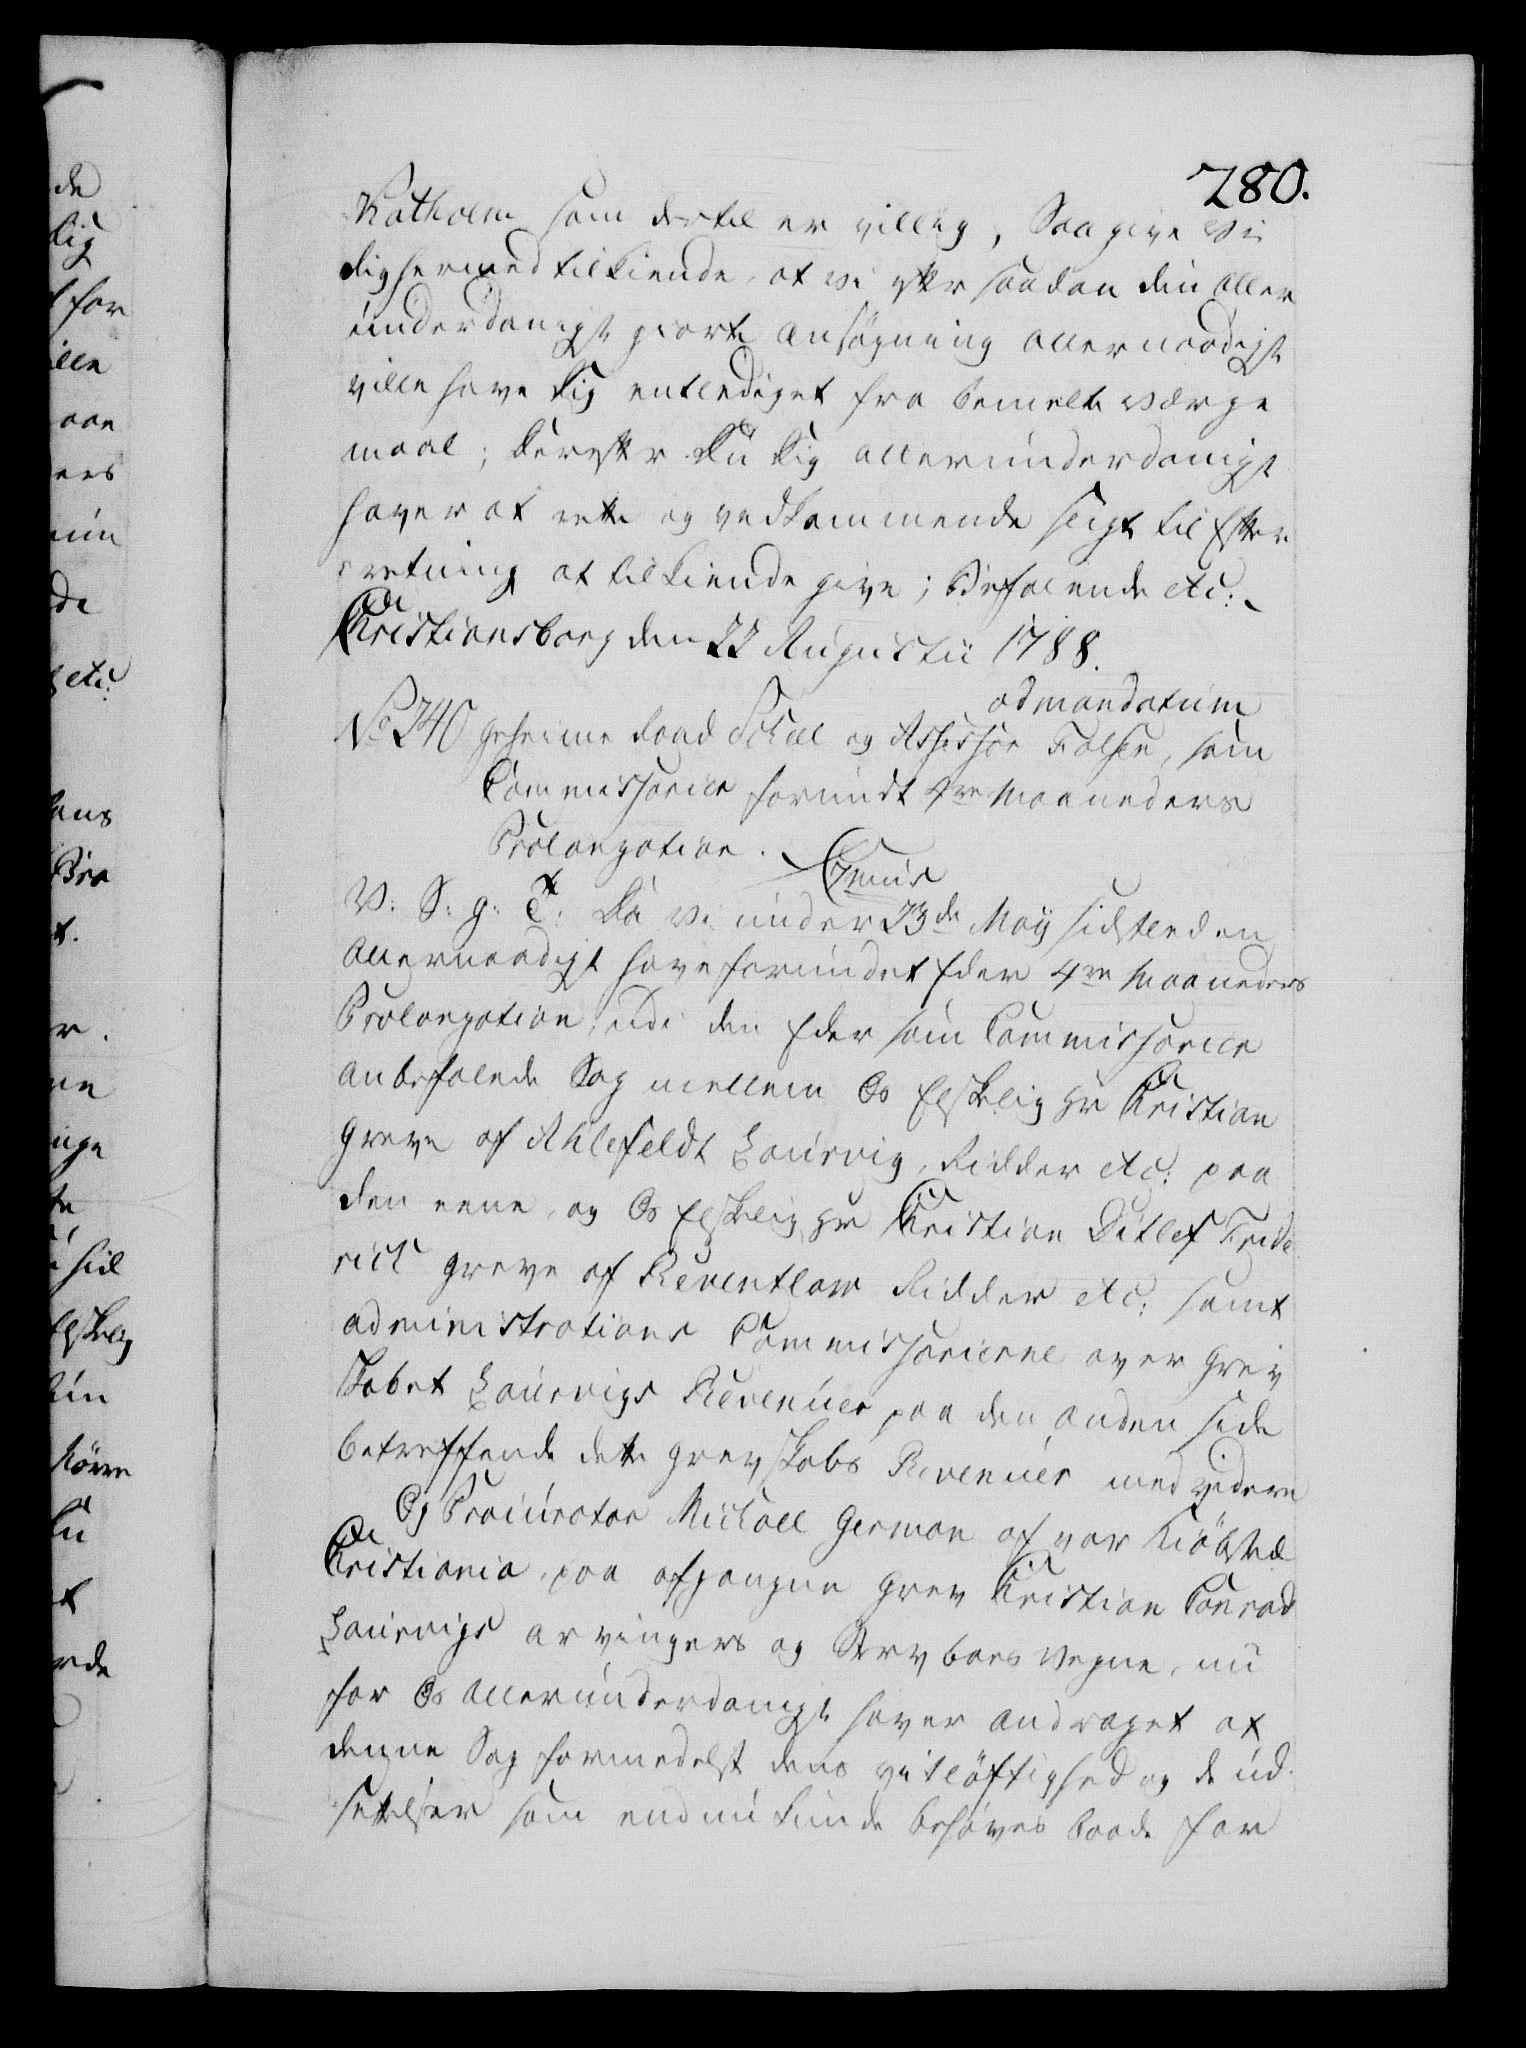 280.
Ratholm som dertil er villig, Saa give Vi
dig hermed tilkiende, at vi efter saadan din aller
underdanigst giorte ansøgning allernaadigst
ville have dig entlediget fra bemelte værge
maal; derefter du dig allerunderdanigst
haver at rette og vedkommende selgt til Efter
retning at tilkiende give; Befalende etc:
Christiansborg den 22 Augustii 1788.
ad mandatum
No 240 geheime Raad Scheel og Assessor Falsen, som
Commissarier forundt 4re Maaneders
Prolongation. Cþ
V: S: g: T: Da Vi under 23de Maij sidstleden
allernaadigst have forundet Eder 4re Maaneders
Prolongation udi den Eder som Commissarier
anbefalede Sag mellem Os Elskelig Hr Christian
greve af Ahlefeldt Laurvig, Ridder etc: paa
den eene, og Os Elskelig Hr Christian Ditlef Fride
rich greve af Reventlow Ridder etc: samt
administrations Commissarierne over grev
skabet Laurvigs Revenuer paa den anden side
betreffende dette grevskabs Revenuer med videre
Og Procurator Michael German af vor Kiøbsted
Christiania, paa afgangne grev Christian Conrad
Laurvigs arvingers og Sterboes vegne, nu
for Os allerunderdanigst haver andraget at
denne Sag formedelst dens vitløftighed og de ud
settelser som endnu kunde behøves baade for
de
lig
for
ille
ers
etc:
Bro
r.
Elskelig